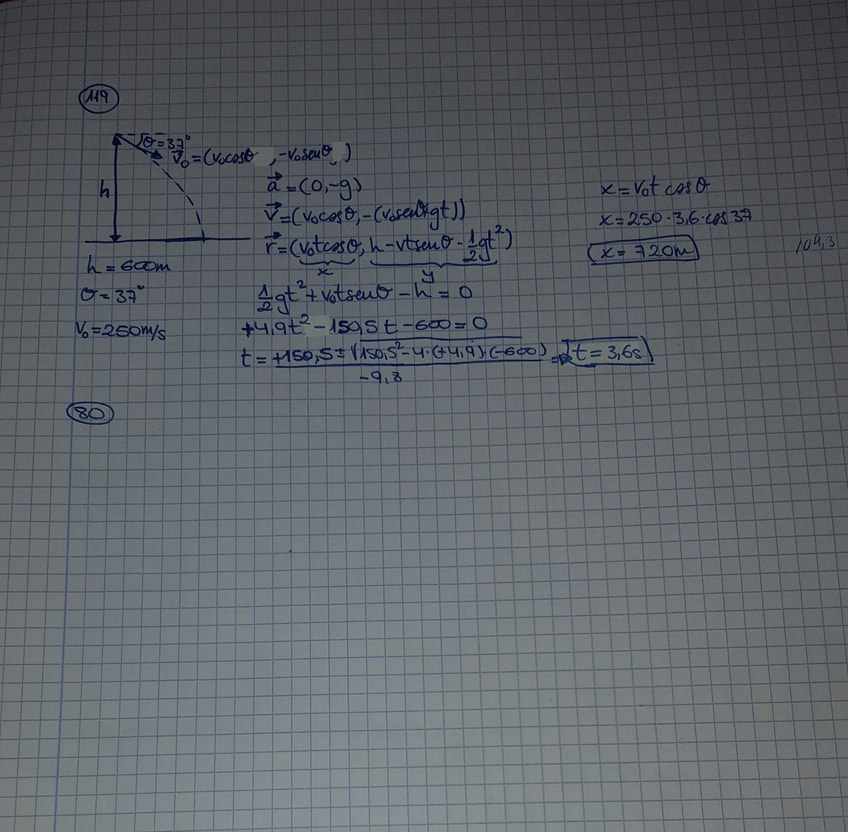 119
θ=37°
v⃗₀=(v₀cosθ, -v₀senθ)
h
a⃗=(0,-g)
v⃗=(v₀cosθ,-(v₀senθ+gt))
r⃗=(v₀tcosθ, h-vtsenθ-½gt²)
x y
h=600m
θ=37°
v₀=250m/s
½gt²+v₀tsenθ-h=0
+4,9t²-150,5t-600=0
t=+150,5±√150,5²-4·(+4,9)·(-600) / -9,8 = t=3,6s
x=v₀t cosθ
x=250·3,6·cos37
x=720m
104,3
80